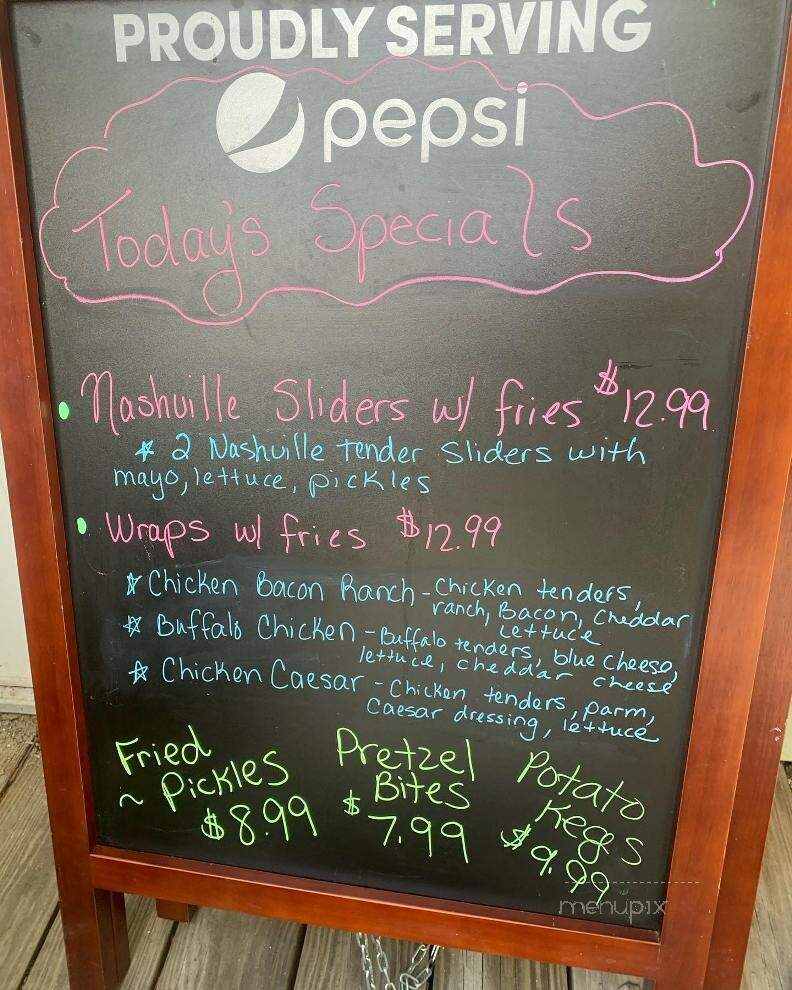 PROUDLY SERVING
pepsi
Today's Specials
Nashville Sliders w/ fries $12.99
2 Nashville tender sliders with
mayo, lettuce, pickles
Wraps w/ fries $12.99
Chicken Bacon Ranch - Chicken tenders,
ranch, Bacon, Cheddar
Lettuce
Buffalo Chicken - Buffalo tenders, blue cheese,
lettuce, cheddar cheese
Chicken Caesar - Chicken tenders, parm,
Caesar dressing, lettuce
Fried
~ Pickles
$8.99
Pretzel
Bites
$7.99
Potato
Kegs
$9.99
menupix